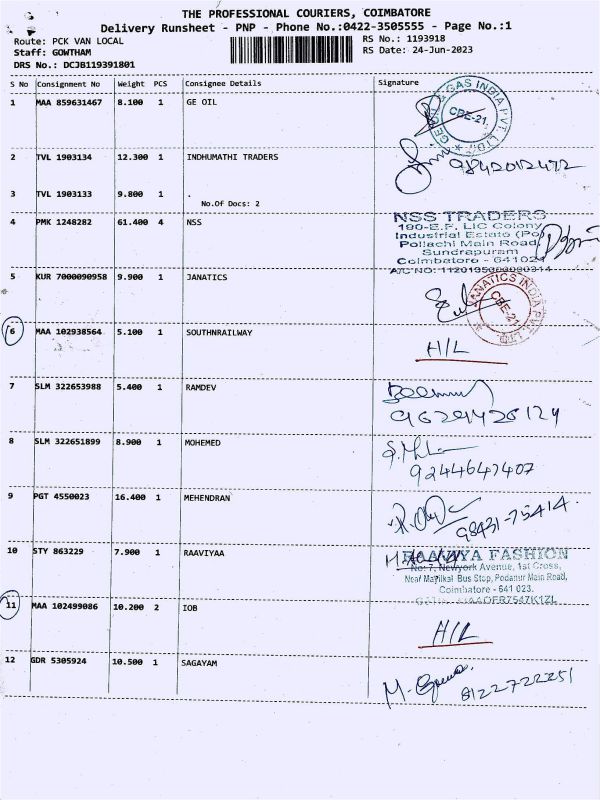 THE PROFESSIONAL COURIERS, COIMBATORE
Delivery Runsheet - PNP - Phone No.:0422-3505555 - Page No.:1
Route: PCK VAN LOCAL RS No.: 1193918
Staff: GOWTHAM RS Date: 24-Jun-2023
DRS No.: DCJB119391801
S No Consignment No Weight PCS Consignee Details Signature
1 MAA 859631467 8.100 1 GE OIL
GE OIL & GAS INDIA PVT. LTD. CBE-21.
2 TVL 1903134 12.300 1 INDHUMATHI TRADERS
9842012472
3 TVL 1903133 9.800 1 .
No.Of Docs: 2
4 PMK 1248282 61.400 4 NSS
NSS TRADERS
190-E.F, LIC Colony
Industrial Estate (Po)
Pollachi Main Road,
Sundrapuram
Coimbatore - 641024
A/C NO:
5 KUR 7000090958 9.900 1 JANATICS
JANATICS INDIA PVT. LTD. CBE-21
6 MAA 102938564 5.100 1 SOUTHNRAILWAY
H/L
7 SLM 322653988 5.400 1 RAMDEV
9629426124
8 SLM 322651899 8.900 1 MOHEMED
9244647407
9 PGT 4550023 16.400 1 MEHENDRAN
98431-75414.
10 STY 863229 7.900 1 RAAVIYAA
RAAVIYA FASHION
No: 7, Newyork Avenue, 1st Cross,
Near Mayilkal Bus Stop, Podanur Main Road,
Coimbatore - 641 023.
11 MAA 102499086 10.200 2 IOB
H/L
12 GDR 5305924 10.500 1 SAGAYAM
8122722251